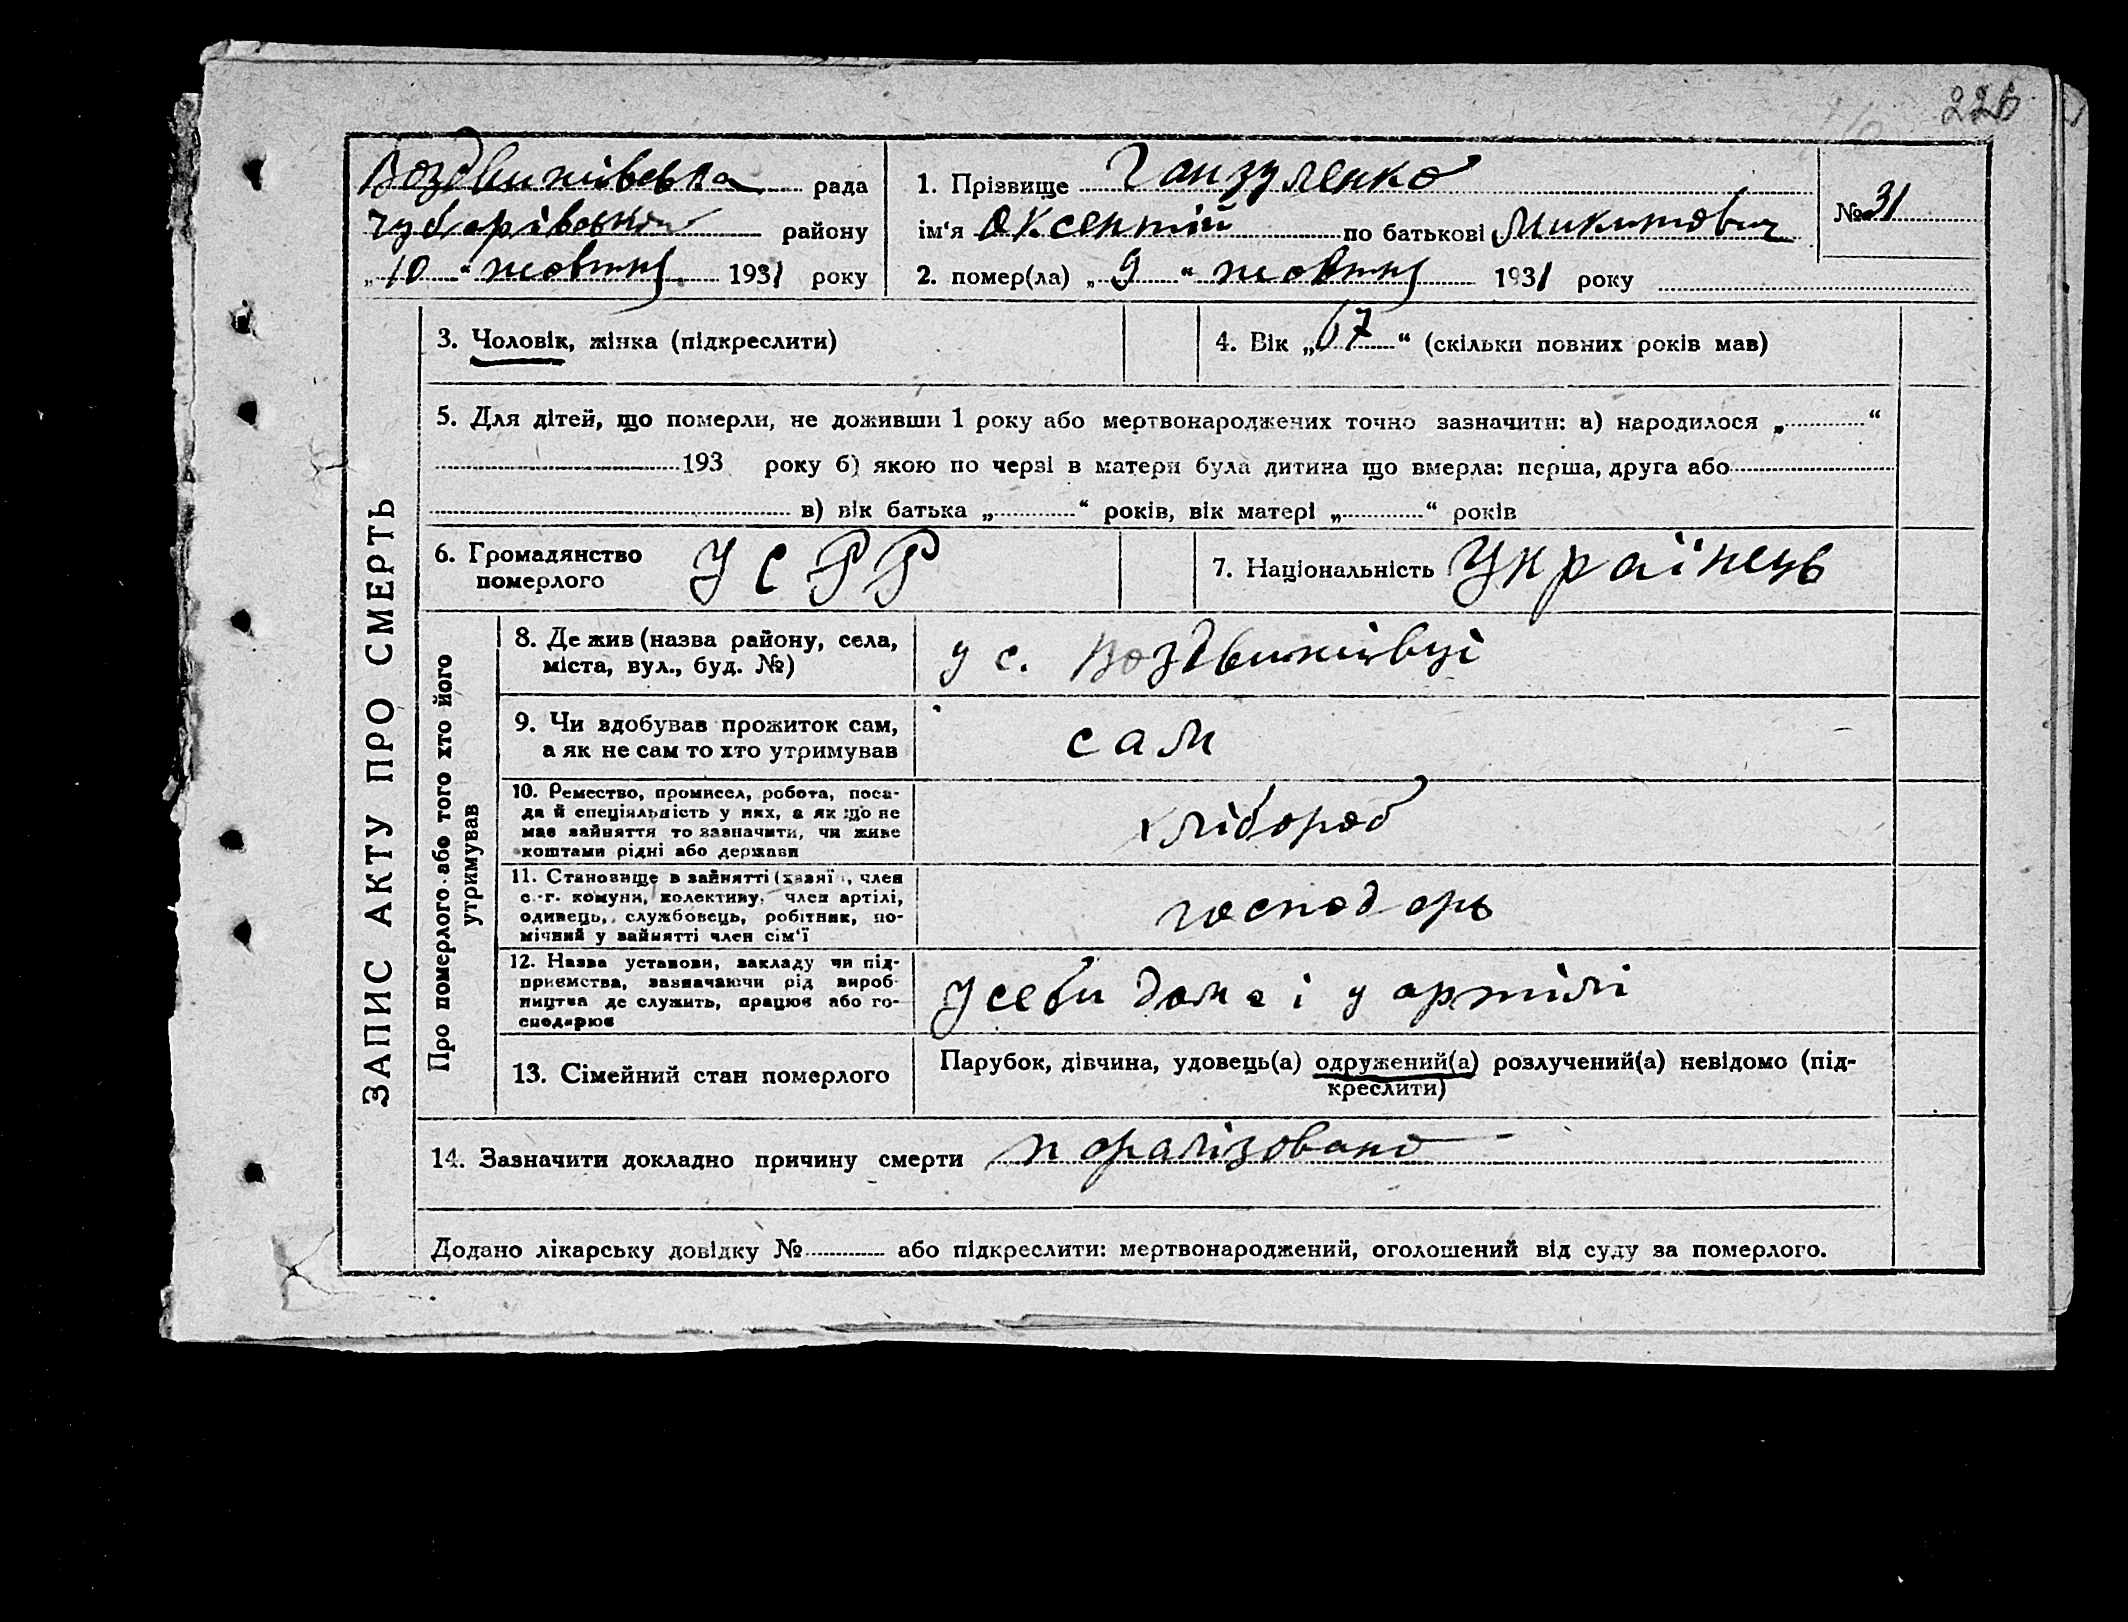 226
Воздвижівська рада
Чубарівського району
„10“ жовтня 1931 року
1. Прізвище Ганзуленко
ім‘я Оксентій по батькові Микитович
2. помер(ла) „9“ жовтня 1931 року
№ 31
ЗАПИС АКТУ ПРО СМЕРТЬ
3. Чоловік, жінка (підкреслити)
4. Вік „67“ (скільки повних років мав)
5. Для дітей, що померли, не доживши 1 року або мертвонароджених точно зазначити: а) народилося „ “
193 року б) якою по черзі в матери була дитина що вмерла: перша, друга або
в) вік батька „ “ років, вік матері „ “ років
6. Громадянство
померлого
УСРР
7. Національність Українець
Про померлого або того хто його
утримував
8. Де жив (назва району, села,
міста, вул., буд. №)
у с. Воздвижівці
9. Чи здобував прожиток сам,
а як не сам то хто утримував
сам
10. Ремество, промисел, робота, поса-
да й спеціяльність у них, а як що не
мав зайняття то зазначити, чи живе
коштами рідні або держави
хлібороб
11. Становище в зайнятті (хазяї , член
с.-г. комуни, колективу, член артілі,
одинець, службовець, робітник, по-
мічний у зайнятті член сім‘ї
господарь
12. Назва установи, закладу чи під-
приємства, зазначаючи рід вироб-
ництва де служить, працює або го-
сподарює
У себи дома і у артілі
13. Сімейний стан померлого
Парубок, дівчина, удовець(а) одружений(а) розлучений(а) невідомо (під-
креслити)
14. Зазначити докладно причину смерти паралізовано
Додано лікарську довідку № або підкреслити: мертвонароджений, оголошений від суду за померлого.